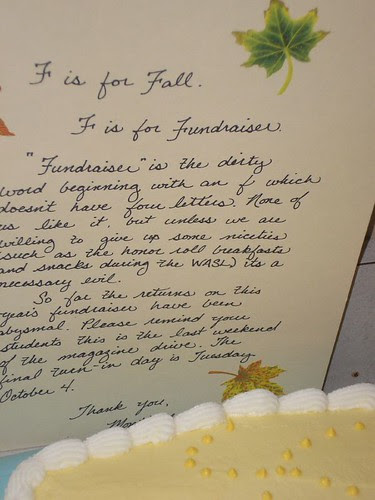 F is for Fall.
F is for Fundraiser.
"Fundraiser" is the dirty
word beginning with an f which
doesn't have four letters. None of
us like it, but unless we are
willing to give up some niceties
(such as the honor roll breakfasts
and snacks during the WASL) its a
necessary evil.
So far the returns on this
years fundraiser have been
abysmal. Please remind your
students this is the last weekend
of the magazine drive. The
final turn-in day is Tuesday
October 4.
Thank you,